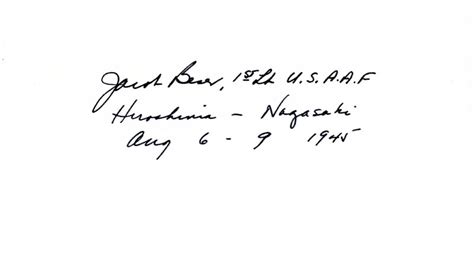 Jacob Beser, 1st Lt U.S.A.A.F
Hiroshima - Nagasaki
Aug 6 - 9 1945